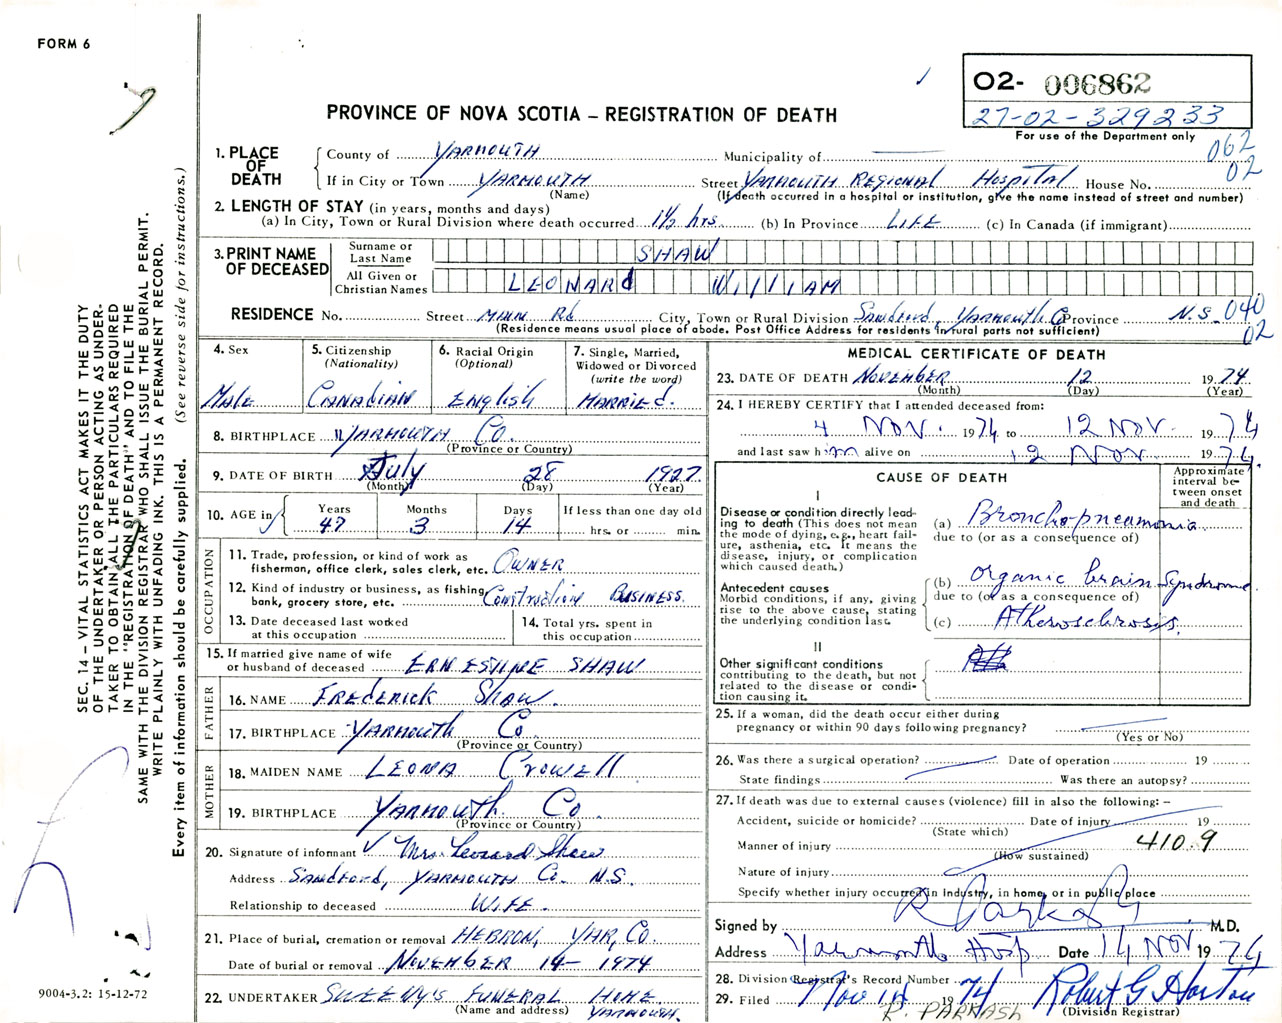 FORM 6
O2- 006862
27-02-329233
For use of the Department only
062
02
PROVINCE OF NOVA SCOTIA – REGISTRATION OF DEATH
1. PLACE OF DEATH
County of YARMOUTH Municipality of
If in City or Town YARMOUTH Street YARMOUTH REGIONAL HospitAL House No.
(Name) (If death occurred in a hospital or institution, give the name instead of street and number)
2. LENGTH OF STAY (in years, months and days)
(a) In City, Town or Rural Division where death occurred 1½ hrs (b) In Province LIFE (c) In Canada (if immigrant)
3. PRINT NAME OF DECEASED
Surname or Last Name SHAW
All Given or Christian Names LEONARd WIllIAM
RESIDENCE No. Street MAIN Rd City, Town or Rural Division Sandford, Yarmouth Co Province N.S. 040
02
(Residence means usual place of abode. Post Office Address for residents in rural parts not sufficient)
4. Sex
Male
5. Citizenship
(Nationality)
CANAdiAN
6. Racial Origin
(Optional)
ENGlish
7. Single, Married,
Widowed or Divorced
(write the word)
MARRIEd.
8. BIRTHPLACE YARMOUTH Co.
(Province or Country)
9. DATE OF BIRTH July 28 1927
(Month) (Day) (Year)
10. AGE in
Years Months Days If less than one day old
47 3 14 hrs. or min.
OCCUPATION
11. Trade, profession, or kind of work as
fisherman, office clerk, sales clerk, etc. OWNER
12. Kind of industry or business, as fishing,
bank, grocery store, etc. Construction BUSINESS.
13. Date deceased last worked
at this occupation
14. Total yrs. spent in
this occupation
15. If married give name of wife
or husband of deceased ERNESTINE SHAW
FATHER
16. NAME FREDERICK SHAW.
17. BIRTHPLACE YARMOUTH Co
(Province or Country)
MOTHER
18. MAIDEN NAME LEONA CROWEll
19. BIRTHPLACE YARMOUTH Co.
(Province or Country)
20. Signature of informant Mrs. Leonard Shaw
Address SANDFORD, YARMOUTH Co. N.S.
Relationship to deceased WIFE.
21. Place of burial, cremation or removal HEBRON, YAR, Co.
Date of burial or removal NOVEMBER 14 – 1974
22. UNDERTAKER SWEENY'S FUNERAL HOME
(Name and address) YARMOUTH.
MEDICAL CERTIFICATE OF DEATH
23. DATE OF DEATH NOVEMBER 12 1974
(Month) (Day) (Year)
24. I HEREBY CERTIFY that I attended deceased from:
4 NOV. 1974 to 12 NOV. 1974
and last saw him alive on 12 NOV. 1974.
CAUSE OF DEATH
Approximate
interval be-
tween onset
and death
I
Disease or condition directly lead-
ing to death (This does not mean
the mode of dying, e.g., heart fail-
ure, asthenia, etc. It means the
disease, injury, or complication
which caused death.)
(a) Bronchopneumonia
due to (or as a consequence of)
Antecedent causes
Morbid conditions, if any, giving
rise to the above cause, stating
the underlying condition last.
(b) Organic brain Syndrome.
due to (or as a consequence of)
(c) Atherosclerosis.
II
Other significant conditions
contributing to the death, but not
related to the disease or condi-
tion causing it.
25. If a woman, did the death occur either during
pregnancy or within 90 days following pregnancy?
(Yes or No)
26. Was there a surgical operation? Date of operation 19
State findings Was there an autopsy?
27. If death was due to external causes (violence) fill in also the following: –
Accident, suicide or homicide? Date of injury 19
(State which)
Manner of injury 410.9
(How sustained)
Nature of injury
Specify whether injury occurred in Industry, in home, or in public place
Signed by M.D.
Address Yarmouth Hosp Date 14 NOV 1974
28. Division Registrar's Record Number
29. Filed Nov 14 1974 Robert G Horton
(Division Registrar)
R. PARKASH
SEC. 14 – VITAL STATISTICS ACT MAKES IT THE DUTY
OF THE UNDERTAKER OR PERSON ACTING AS UNDER-
TAKER TO OBTAIN ALL THE PARTICULARS REQUIRED
IN THE "REGISTRATION OF DEATH" AND TO FILE THE
SAME WITH THE DIVISION REGISTRAR WHO SHALL ISSUE THE BURIAL PERMIT.
WRITE PLAINLY WITH UNFADING INK. THIS IS A PERMANENT RECORD.
Every item of information should be carefully supplied. (See reverse side for instructions.)
9004-3.2: 15-12-72